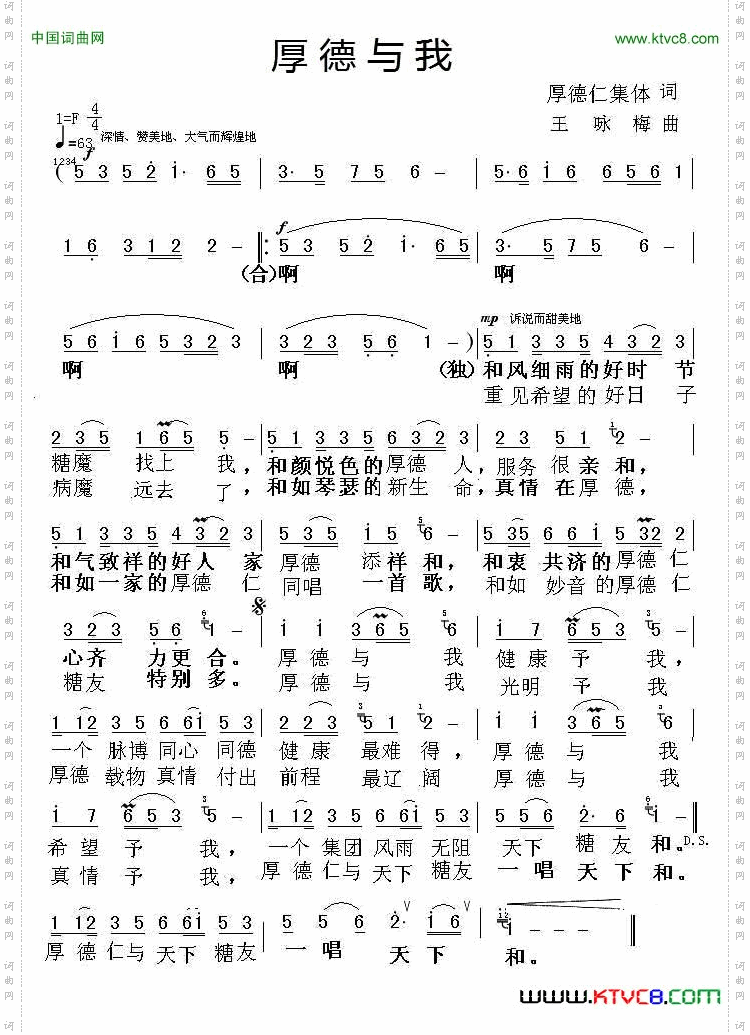 中国词曲网
www.ktvc8.com
厚德与我
厚德仁集体 词
王 咏 梅 曲
1=F 4/4
♩=63 深情、赞美地、大气而辉煌地
f
1234
( 5 3 5 2 1· 6 5 | 3· 5 7 5 6 – | 5·6 1 6 6 5 6 1
f
1 6 3 1 2 2 – |: 5 3 5 2 1· 6 5 | 3· 5 7 5 6 –
(合)啊 啊
mp 诉说而甜美地
5 6 1 6 5 3 2 3 | 3 2 3 5 6 1 – ) | 5 1 3 3 5 4 3 2 3
啊 啊 (独) 和风细雨的好时 节
重见希望的好日 子
2 3 5 1 6 5 5 – | 5 1 3 3 5 6 3 2 3 | 2 2 3 5 1 2 –
糖魔 找上 我，和颜悦色的厚德 人，服务很亲和，
病魔 远去 了，和如琴瑟的新生 命，真情在厚德，
5 1 3 3 5 4 3 2 3 | 5 3 5 1 5 6 – | 5 35 6 6 1 5 32 2
和气致祥的好人 家 厚德 添祥和，和衷 共济的厚德仁
和如一家的厚德 仁 同唱 一首歌，和如 妙音的厚德仁
3 2 3 5 6 1 – | 1 1 3 6 5 6 | 1 7 6 3 5 –
心齐 力更合。 厚德与 我 健康予 我，
糖友 特别多。 厚德与 我 光明予 我
1 12 3 5 6 61 5 3 | 2 2 3 5 1 2 – | 1 1 3 6 5 6
一个 脉搏 同心 同德 健康 最难得， 厚德与 我
厚德 载物 真情 付出 前程 最辽 阔 厚德与 我
1 7 6 5 3 5 – | 1 12 3 5 6 61 5 3 | 5 5 6 2· 6 1 – ‖
希望予 我， 一个 集团 风雨 无阻 天下 糖友 和。D.S.
真情予 我， 厚德 仁与 天下 糖友 一唱 天下 和。
1 12 3 5 6 61 5 3 | 5 5 6 2· 1 6 | 1 – – – ‖
厚德 仁与 天下 糖友 一唱 天下 和。
www.KTVC8.com
词曲网